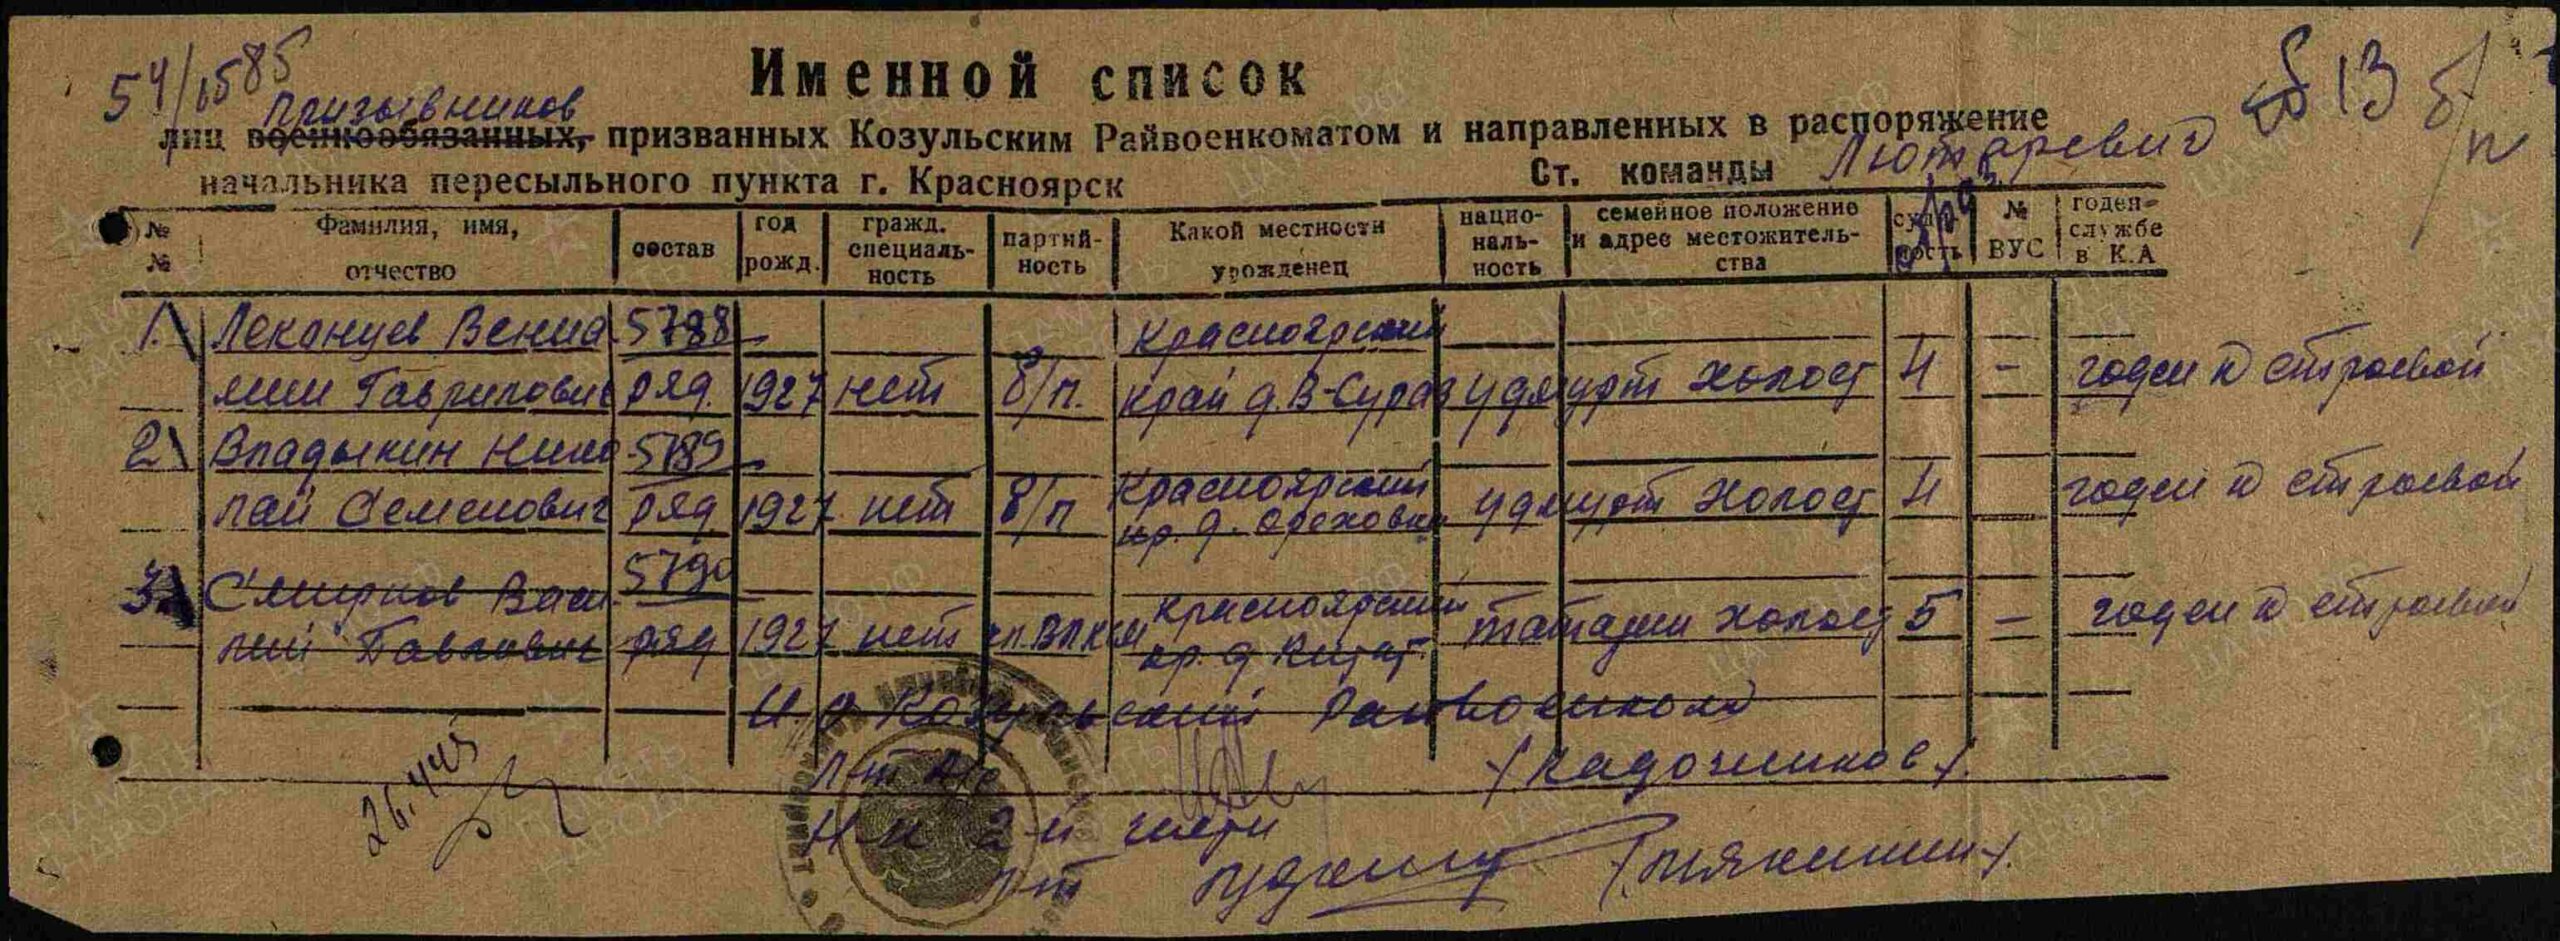 54/1585
Именной список
13 б/п
призывников
лиц военнообязанных, призванных Козульским Райвоенкоматом и направленных в распоряжение
начальника пересыльного пункта г. Красноярск Ст. команды Лютаревич
№ № Фамилия, имя, отчество состав год рожд. гражд. специальность партийность Какой местности урожденец национальность семейное положение и адрес местожительства судимость № ВУС годен- службе в К.А
1. Леканцев Вениа 5788 Красноярский
мин Гаврилович ряд. 1927 нет б/п. край д. В-Сураз удмурт холост 4 - годен к строевой
2 Владыкин Нико 5789 Красноярский
лай Семенович ряд 1927 нет б/п кр. д. Ореховка удмурт холост 4 годен к строевой
3. Смирнов Васи 5790 Красноярский
лий Павлович ряд 1927 нет чл. ВЛКСМ кр. д. Китат. татарин холост 5 - годен к строевой
И.О Козульский Райвоенком
л-т /Кадочников/.
Н-к 2-й части
л-т /Тякинин/.
26.4.45
ПАМЯТЬ НАРОДА
ЦАМО РФ